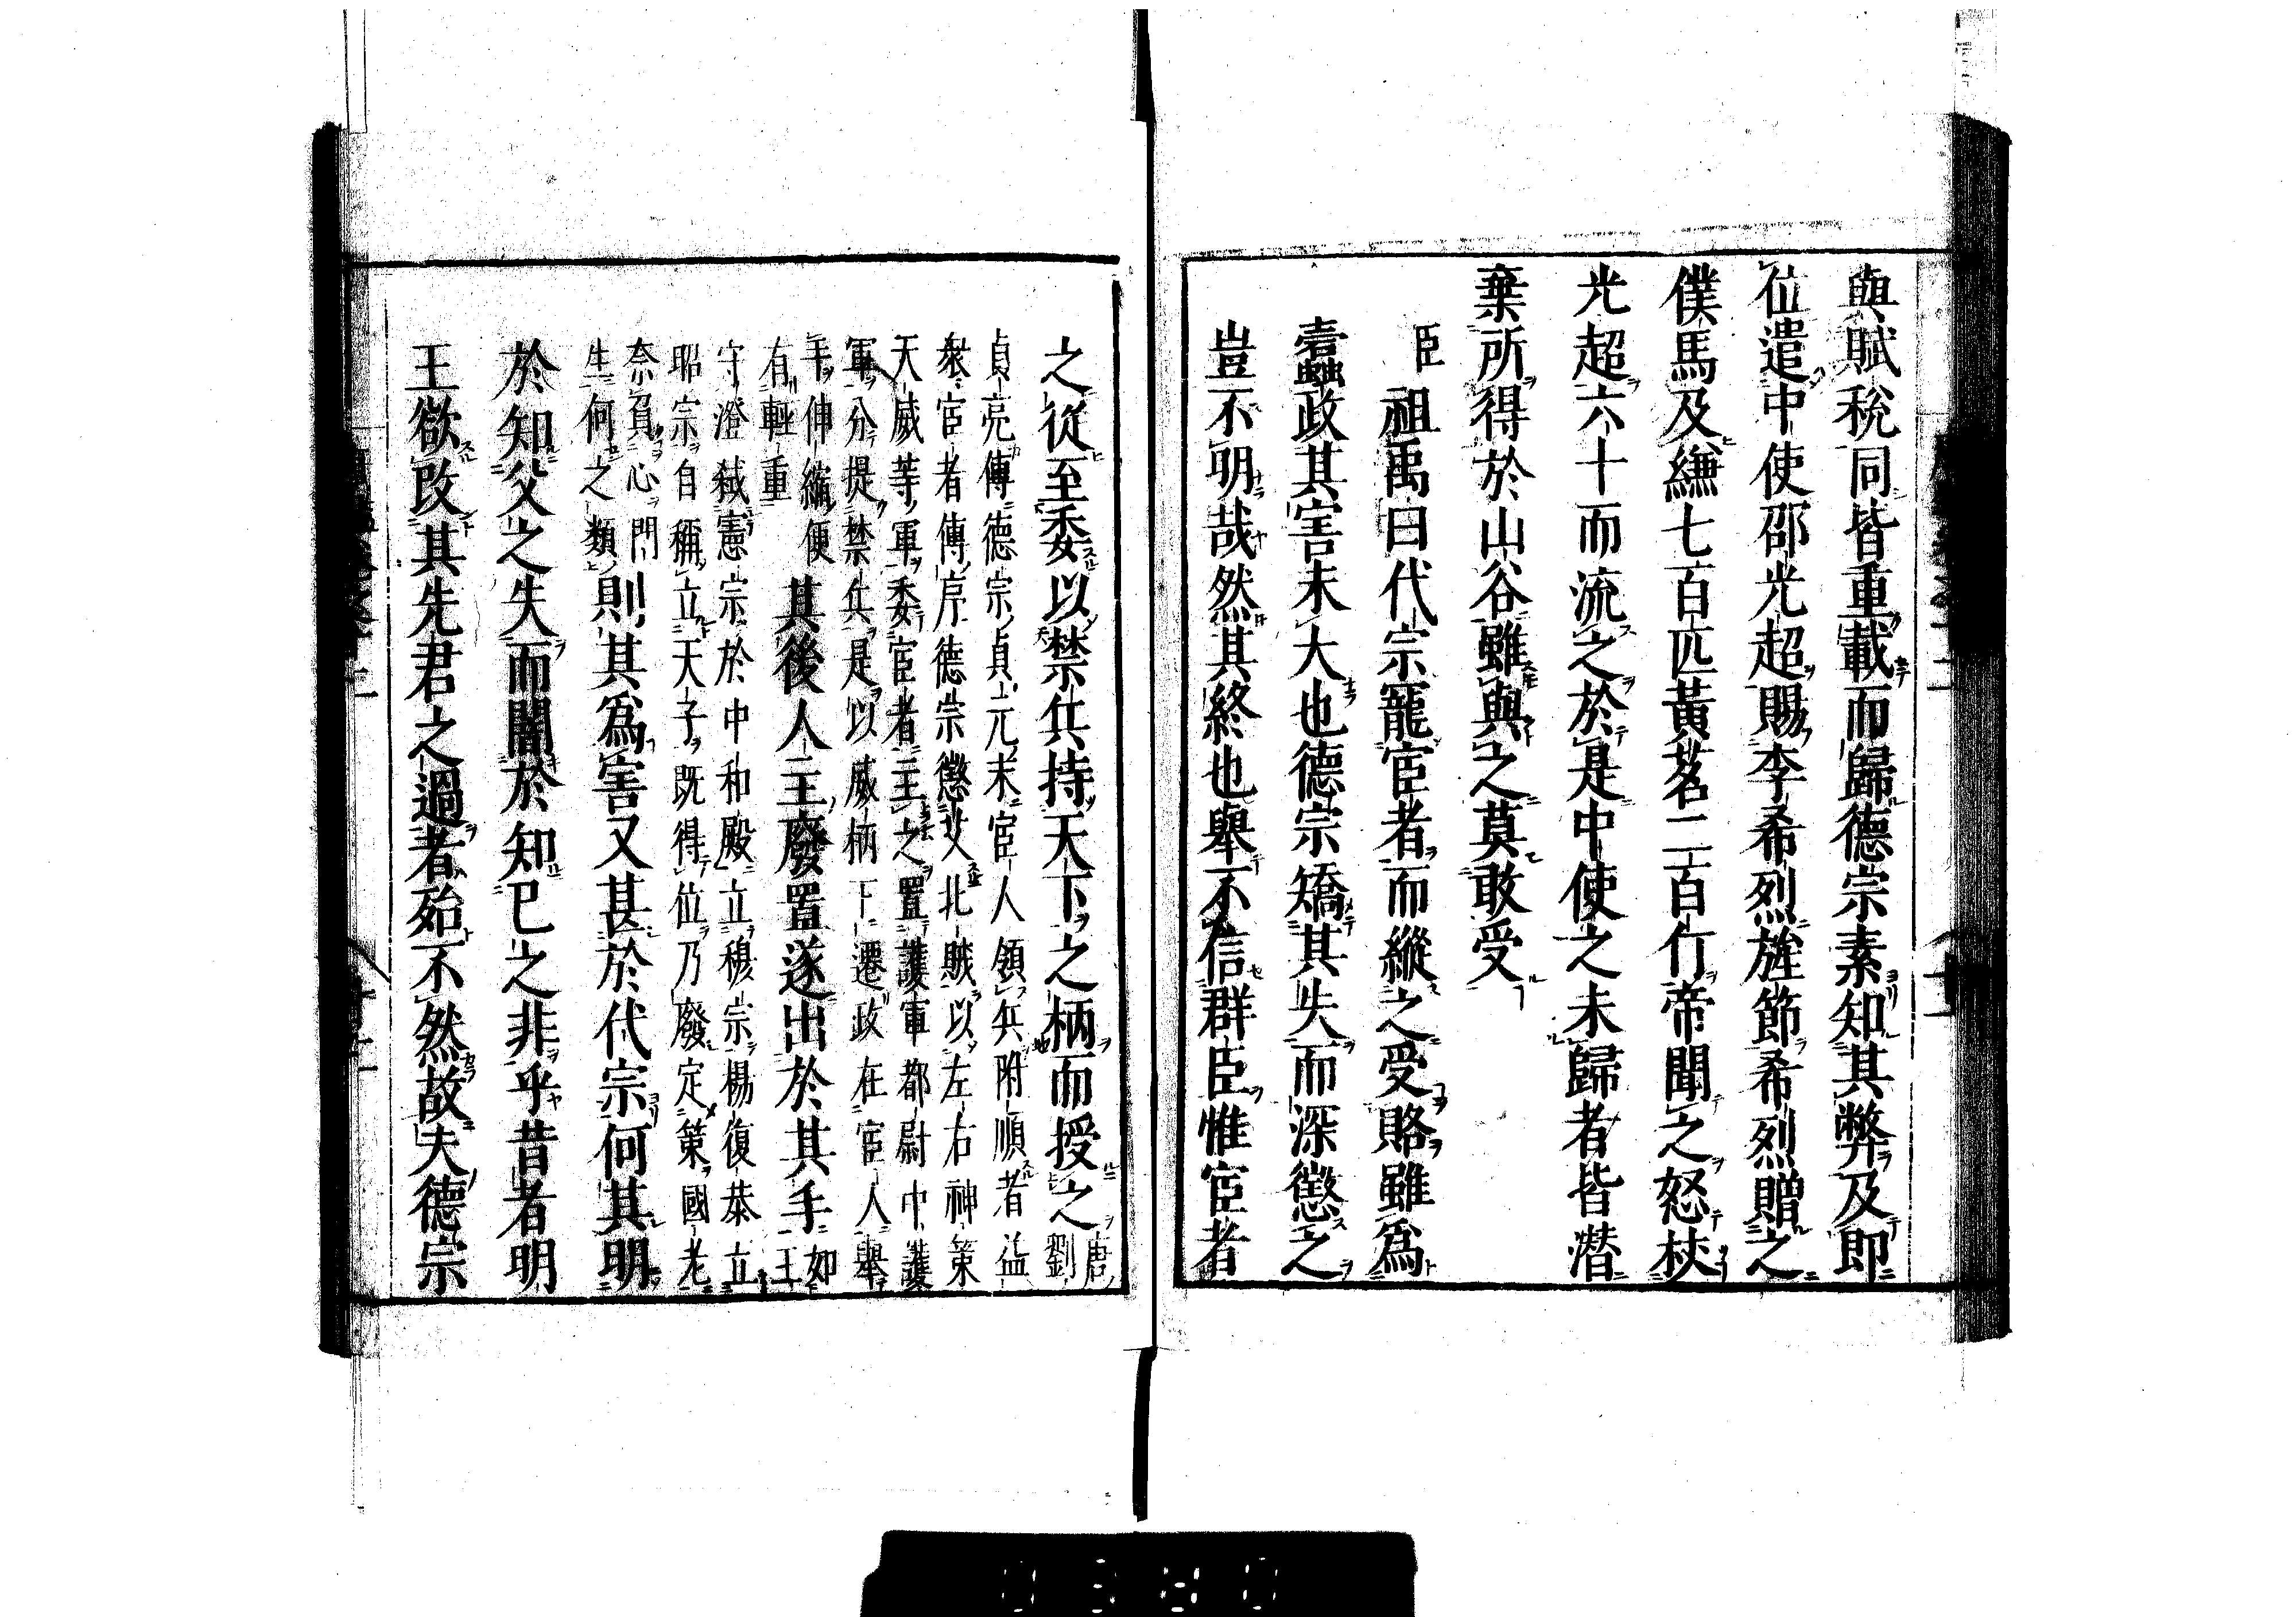 與賦稅同皆重載而歸德宗素知其弊及即
位遣中使邵光超賜李希烈旌節希烈贈之
僕馬及縑七百匹黃茗二百斤帝聞之怒杖
光超六十而流之於是中使之未歸者皆潛
棄所得於山谷雖與之莫敢受
臣祖禹曰代宗寵宦者而縱之受賂雖爲
蠹政其害未大也德宗矯其失而深懲之
豈不明哉然其終也舉不信群臣惟宦者
之從至委以禁兵持天下之柄而授之唐
劉
貞亮傳德宗貞元末宦人領兵附順者益
衆宦者傳序德宗懲艾北賊以左右神策
天威等軍委宦者主之置護軍都尉中護
軍分提禁兵是以威柄下遷政在宦人舉
手伸縮便
有輕重
其後人主廢置遂出於其手如
王
守澄弒憲宗於中和殿立穆宗楊復恭立
昭宗自稱立天子既得位乃廢定策國老
奈負心門
生何之類
則其爲害又甚於代宗何其明
於知父之失而闇於知已之非乎昔者明
王欲改其先君之過者殆不然故夫德宗